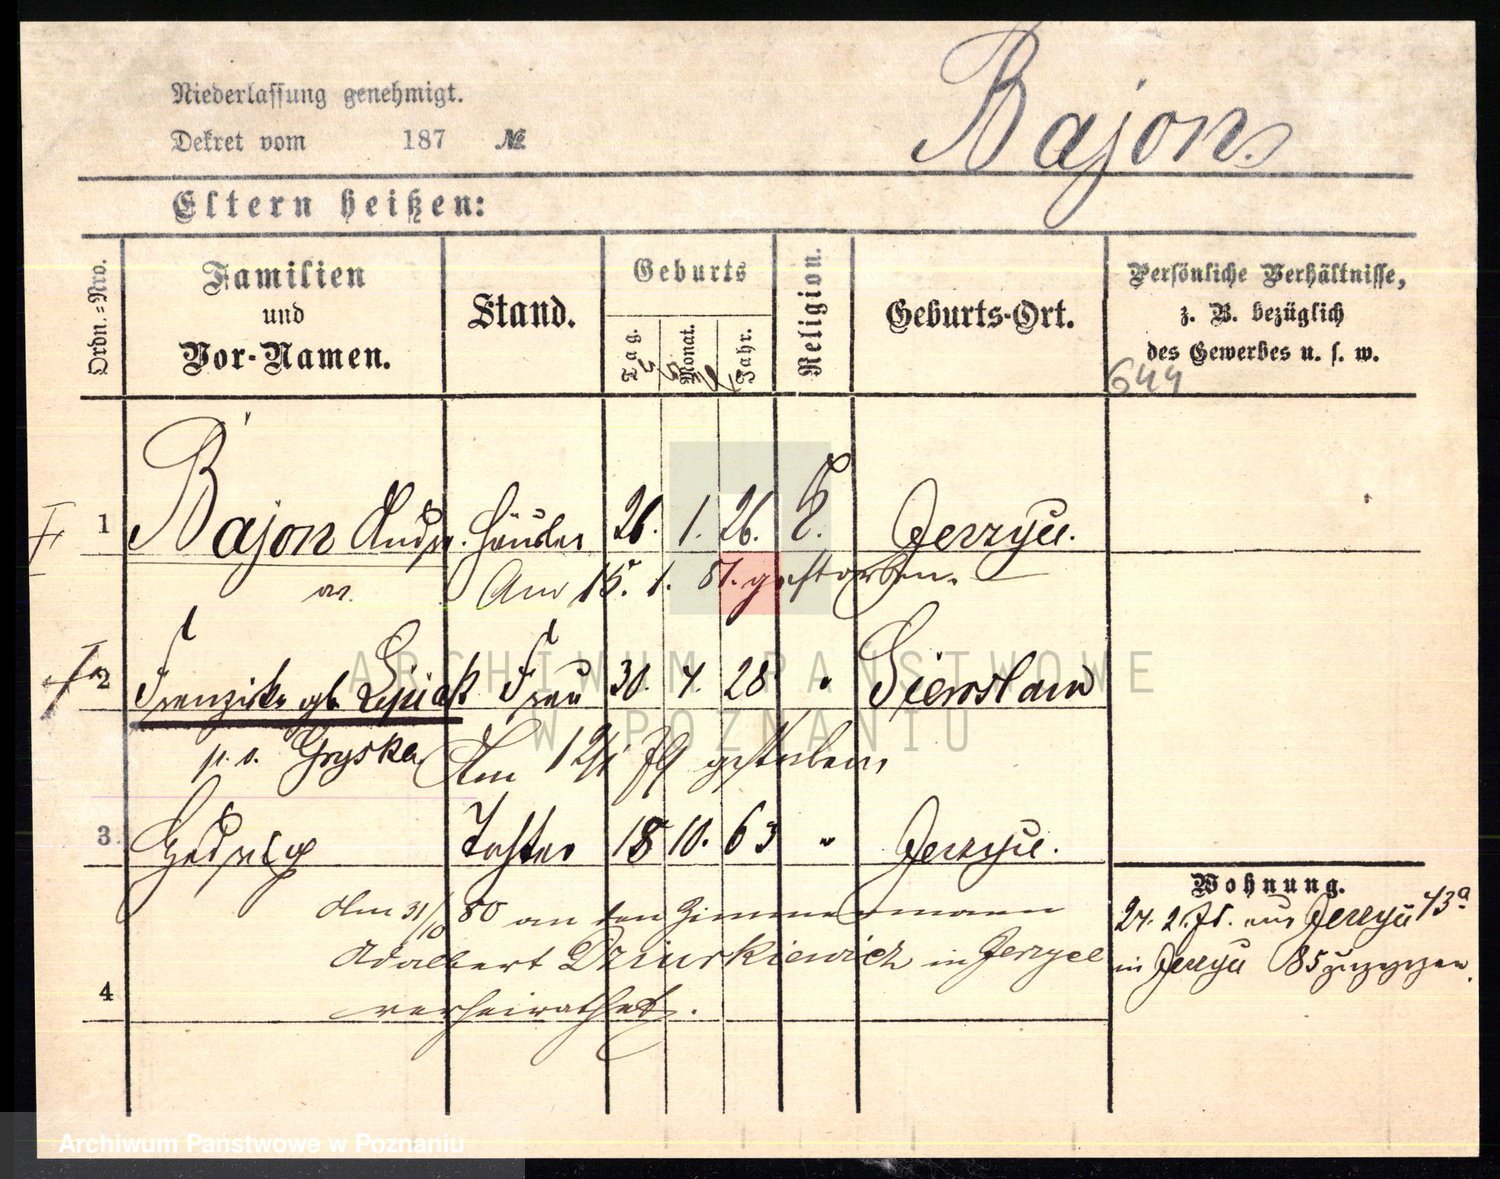 Niederlassung genehmigt.
Dekret vom 187 №
Bajon
Eltern heißen:
Ordn.-Nro.
Familien
und
Vor-Namen.
Stand.
Geburts
Tag.
Monat.
Jahr.
Religion.
Geburts-Ort.
Persönliche Verhältnisse,
z. B. bezüglich
des Gewerbes u. s. w.
644
1 Bajon Andr. Häusler 26. 1. 26. Jerzyce.
Am 15. 1. 81. gestorben.
2 Franziska gb. Lepiak Frau 30. 4. 28 " Sierosław
p. v. Gryska Am 12/1 79 gestorben
3. Hedwig Tochter 18 10. 63 " Jerzyce.
Am 31/10 80 an den Zimmermann
Adalbert Dziurkiewicz in Jerzyce
verheirathet.
4
Wohnung.
24. 2. 78. aus Jerzyce 43a
in Jerzyce 85 zugezogen.
ARCHIWUM PAŃSTWOWE
W POZNANIU
Archiwum Państwowe w Poznaniu